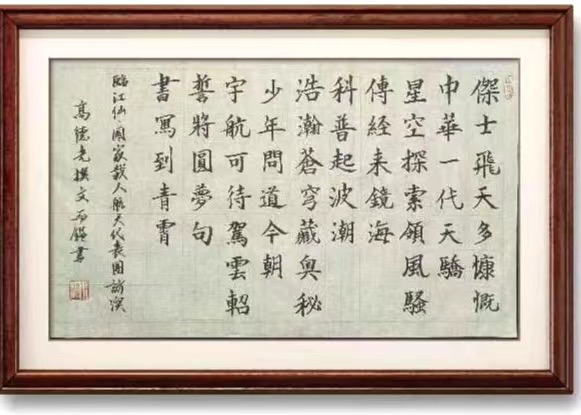 傑士飛天多慷慨
中華一代天驕
星空探索領風騷
傳經来鏡海
科普起波潮
浩瀚蒼穹藏奥秘
少年問道今朝
宇航可待駕雲軺
誓將圓夢句
書寫到青霄
臨江仙·國家載人航天代表團訪澳
高德光撰文 書